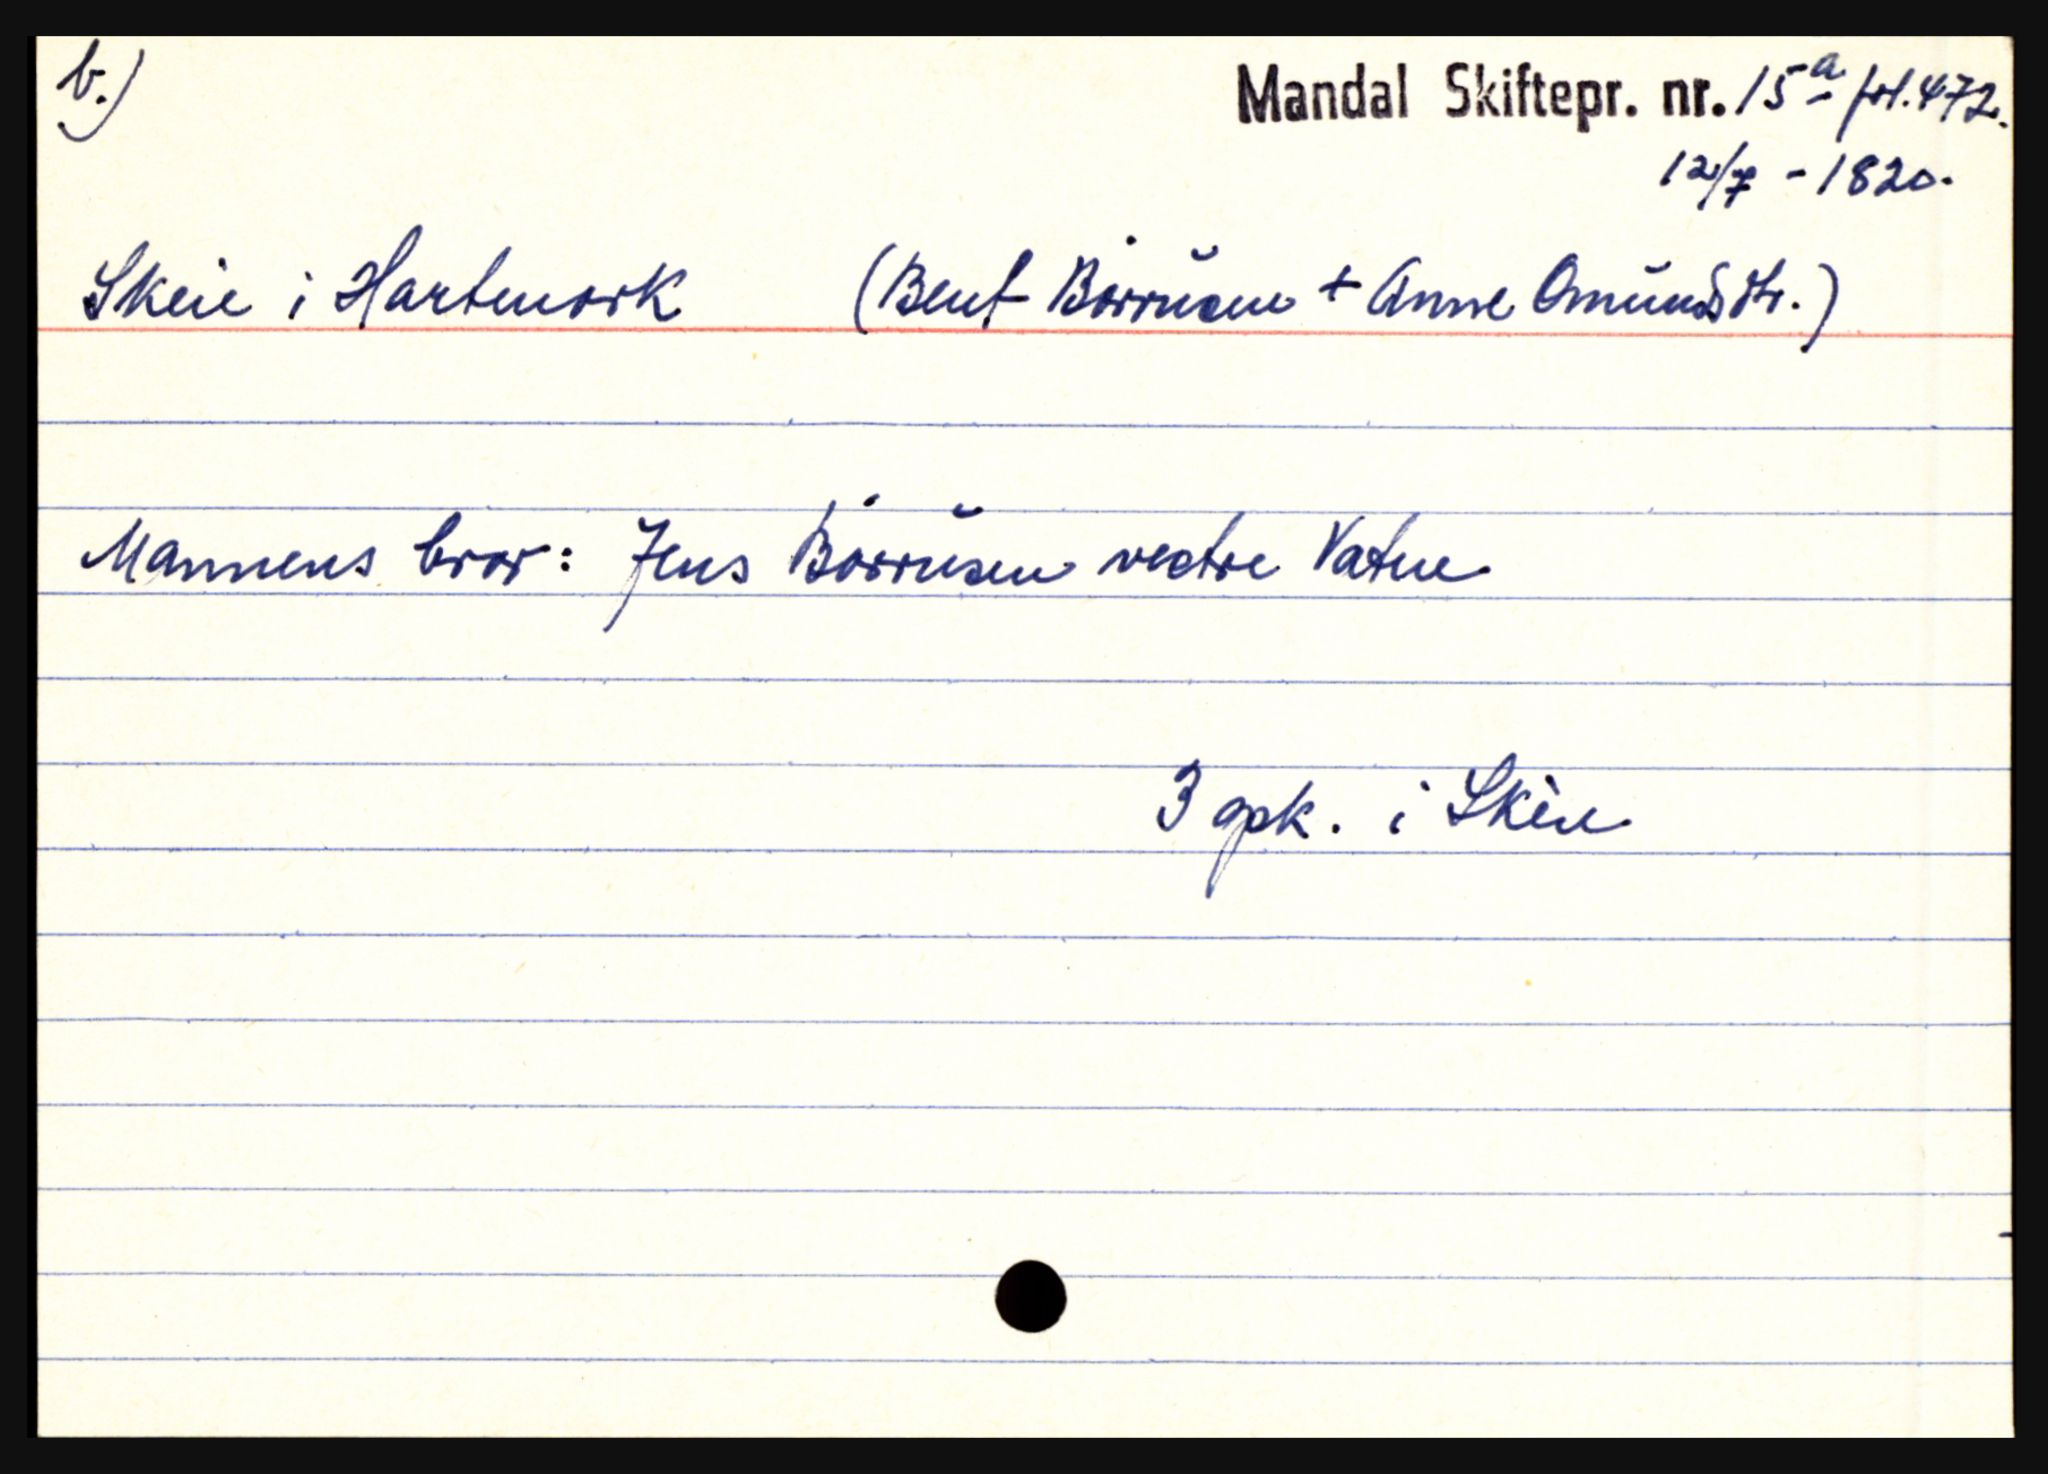 b.)
Mandal Skiftepr. nr. 15a fol. 472.
12/7 - 1820.
Skeie i Hartmark (Bent Børrusen + Anne Omundsdtr.)
Mannens bror: Jens Børrusen vestre Vatne
3 gpk. i Skeie